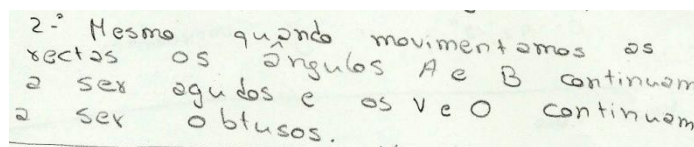 2-º Mesmo quando movimentamos as
rectas os ângulos A e B continuam
a ser agudos e os V e O continuam
a ser obtusos.